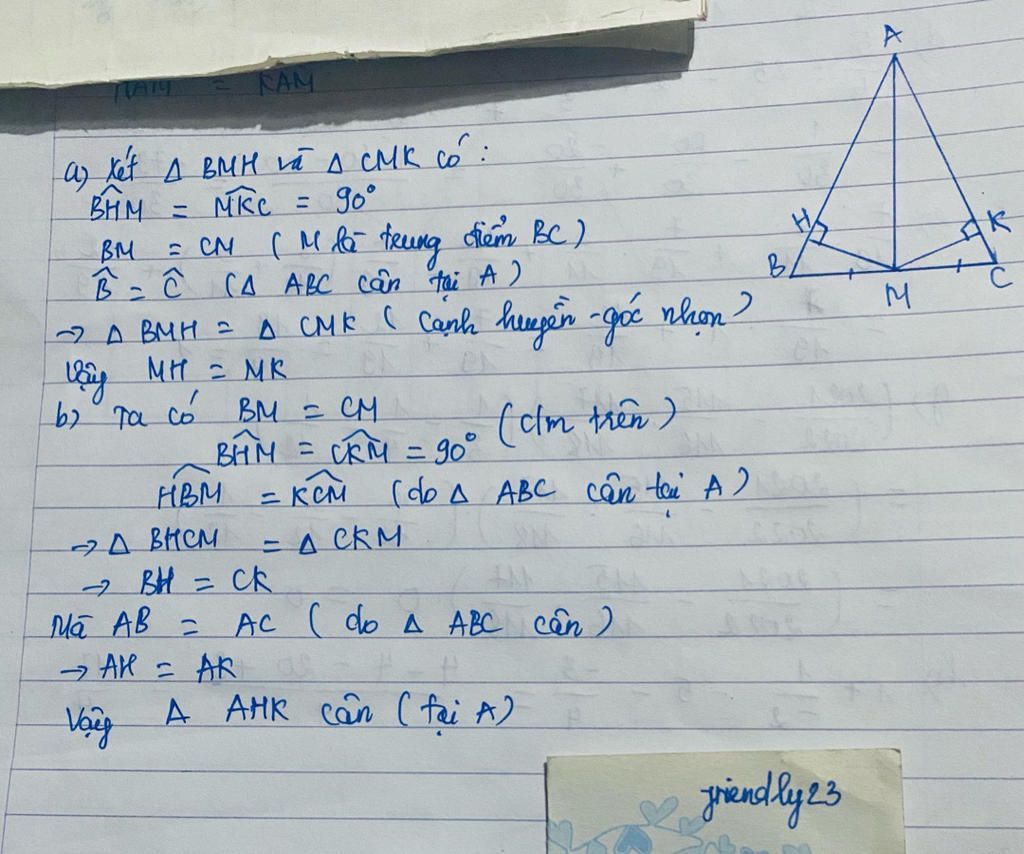 KAM = KAM
a) Xét Δ BMH và Δ CMK có:
BHM = MKC = 90°
BM = CM (M là trung điểm BC)
B = C (Δ ABC cân tại A)
→ Δ BMH = Δ CMK (cạnh huyền - góc nhọn)
Vậy MH = MK
b) Ta có BM = CM
BHM = CKM = 90° (clm trên)
HBM = KCM (do Δ ABC cân tại A)
→ Δ BHCM = Δ CKM
→ BH = CK
Mà AB = AC (do Δ ABC cân)
→ AH = AK
Vậy Δ AHK cân (tại A)
A
H
K
B
M
C
friendly23